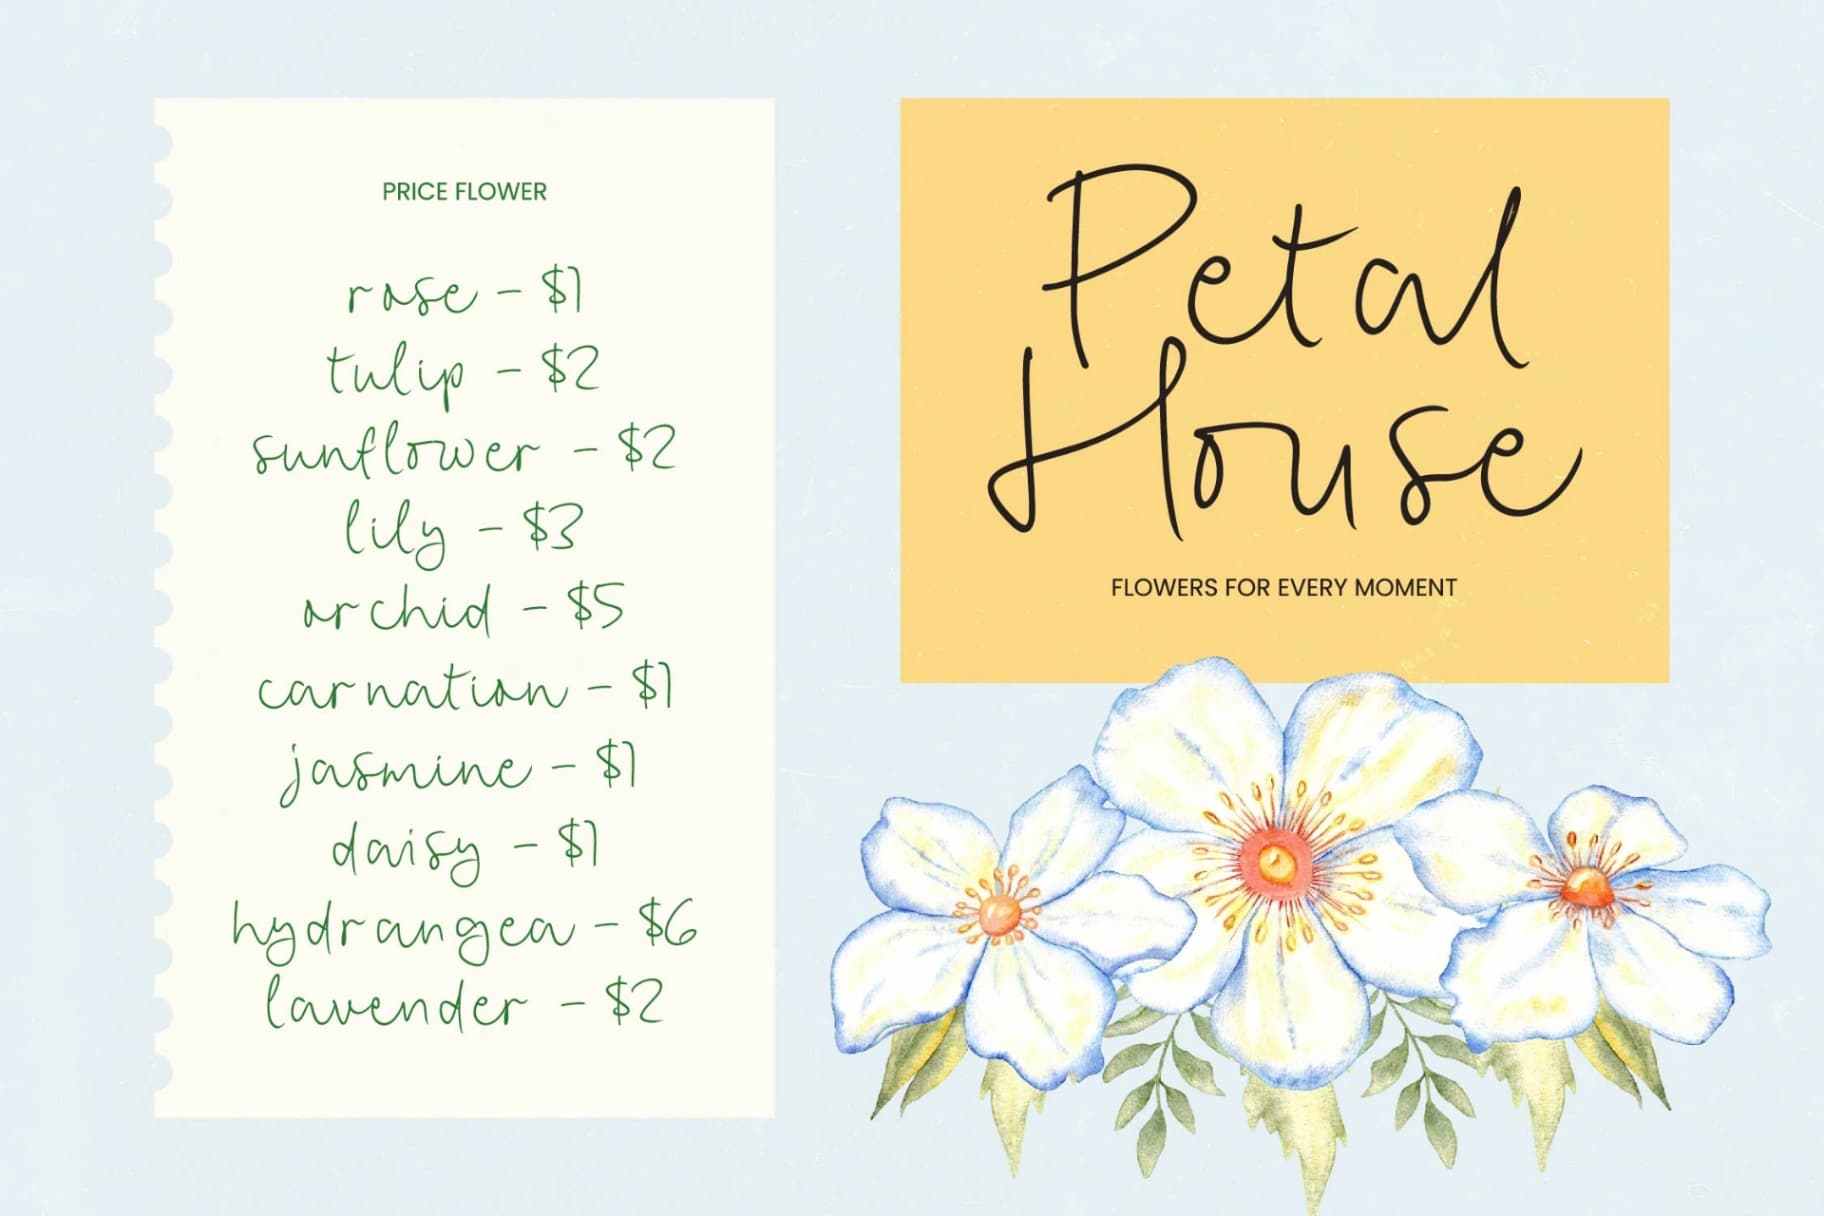 PRICE FLOWER
rose - $1
tulip - $2
sunflower - $2
lily - $3
orchid - $5
carnation - $1
jasmine - $1
daisy - $1
hydrangea - $6
lavender - $2
Petal
House
FLOWERS FOR EVERY MOMENT